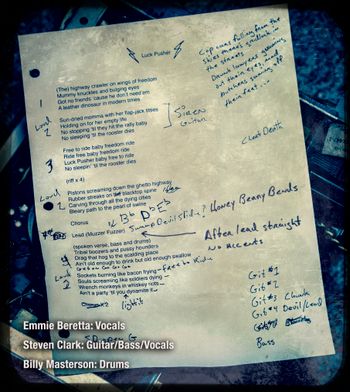 Luck Pusher
Cop cars falling from the
skies there's gridlock in
the streets
Drunk lawyers gouging
out their eyes, and
butchers sawing off
their feet...
(The) highway crawler on wings of freedom
Mummy knuckles and bulging eyes
Got no friends 'cause he don't need 'em
A leather dinosaur in modern times
1
Loud
2
Sun-dried momma with her flap-jack titties
Holding on for her empty life
No stopping 'til they hit the rally baby
No sleeping 'til the rooster dies
SIREN
Guitar
Free to ride baby freedom ride
Ride free baby freedom ride
Luck Pusher baby free to ride
No sleepin' 'til the rooster dies
3
(riff x 4)
Cheat Death
Loud
2
Pistons screaming down the ghetto highway
Rubber streaks on blacktop spine
Carving through all the dying cities
Beary path to the pearl of swine
Chorus
Bb D-Eb
Lead (Murzer Fuzzer)
Swamp Devil Slide! Honey Benny Bends
(spoken verse, bass and drums)
Tribal boozers and pussy hounders
Drag that scag to a piggy wallow
Ain't old enough to drink but old enough swallow
Go Go Go
After lead straight
No accents
4
Loud
2
Sockets burning like bacon frying - Free to Ride
Souls screaming like soldiers dying -
Wrench monkeys in whiskey rots
Ain't a party 'til you dynamite it
x2
light it
G
Git #1
Git #2
Git #3 Chunk
Git #4 Devil/Lead
Bass
Emmie Beretta: Vocals
Steven Clark: Guitar/Bass/Vocals
Billy Masterson: Drums